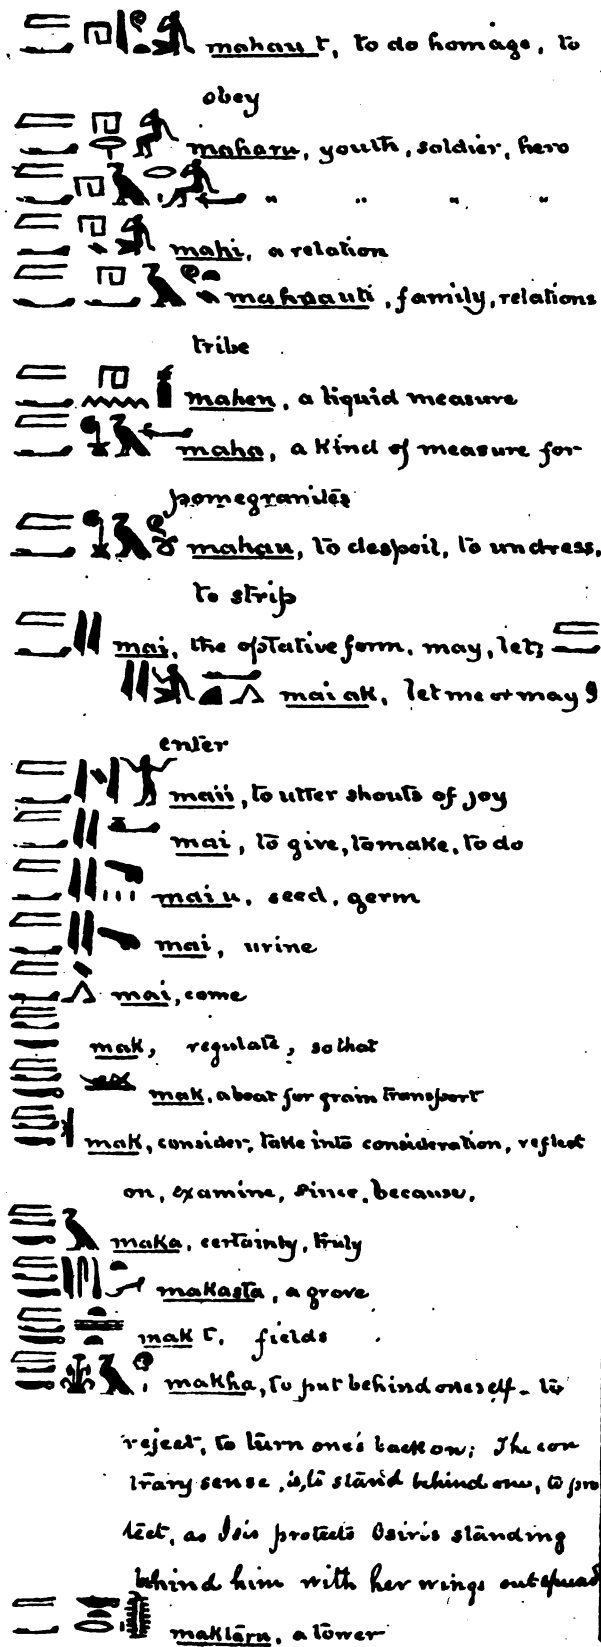 mahau t, to do homage, to
obey
maharu, youth, soldier, hero
" " " "
mahi, a relation
mahnauti, family, relations
tribe
mahen, a liquid measure
maha, a kind of measure for
pomegranites
mahau, to despoil, to undress,
to strip
mai, the optative form, may, let;
mai ak, let me or may I
enter
maii, to utter shouts of joy
mai, to give, to make, to do
mai u, seed, germ
mai, urine
mai, come
mak, regulate, so that
mak, a boat for grain transport
mak, consider, take into consideration, reflect
on, examine, since, because,
maka, certainty, truly
makasta, a grove
mak t, fields
makha, to put behind oneself - to
reject, to turn one's back on; The con
trary sense, is, to stand behind one, to pro
tect, as Isis protects Osiris standing
behind him with her wings outspread
maktaru, a tower